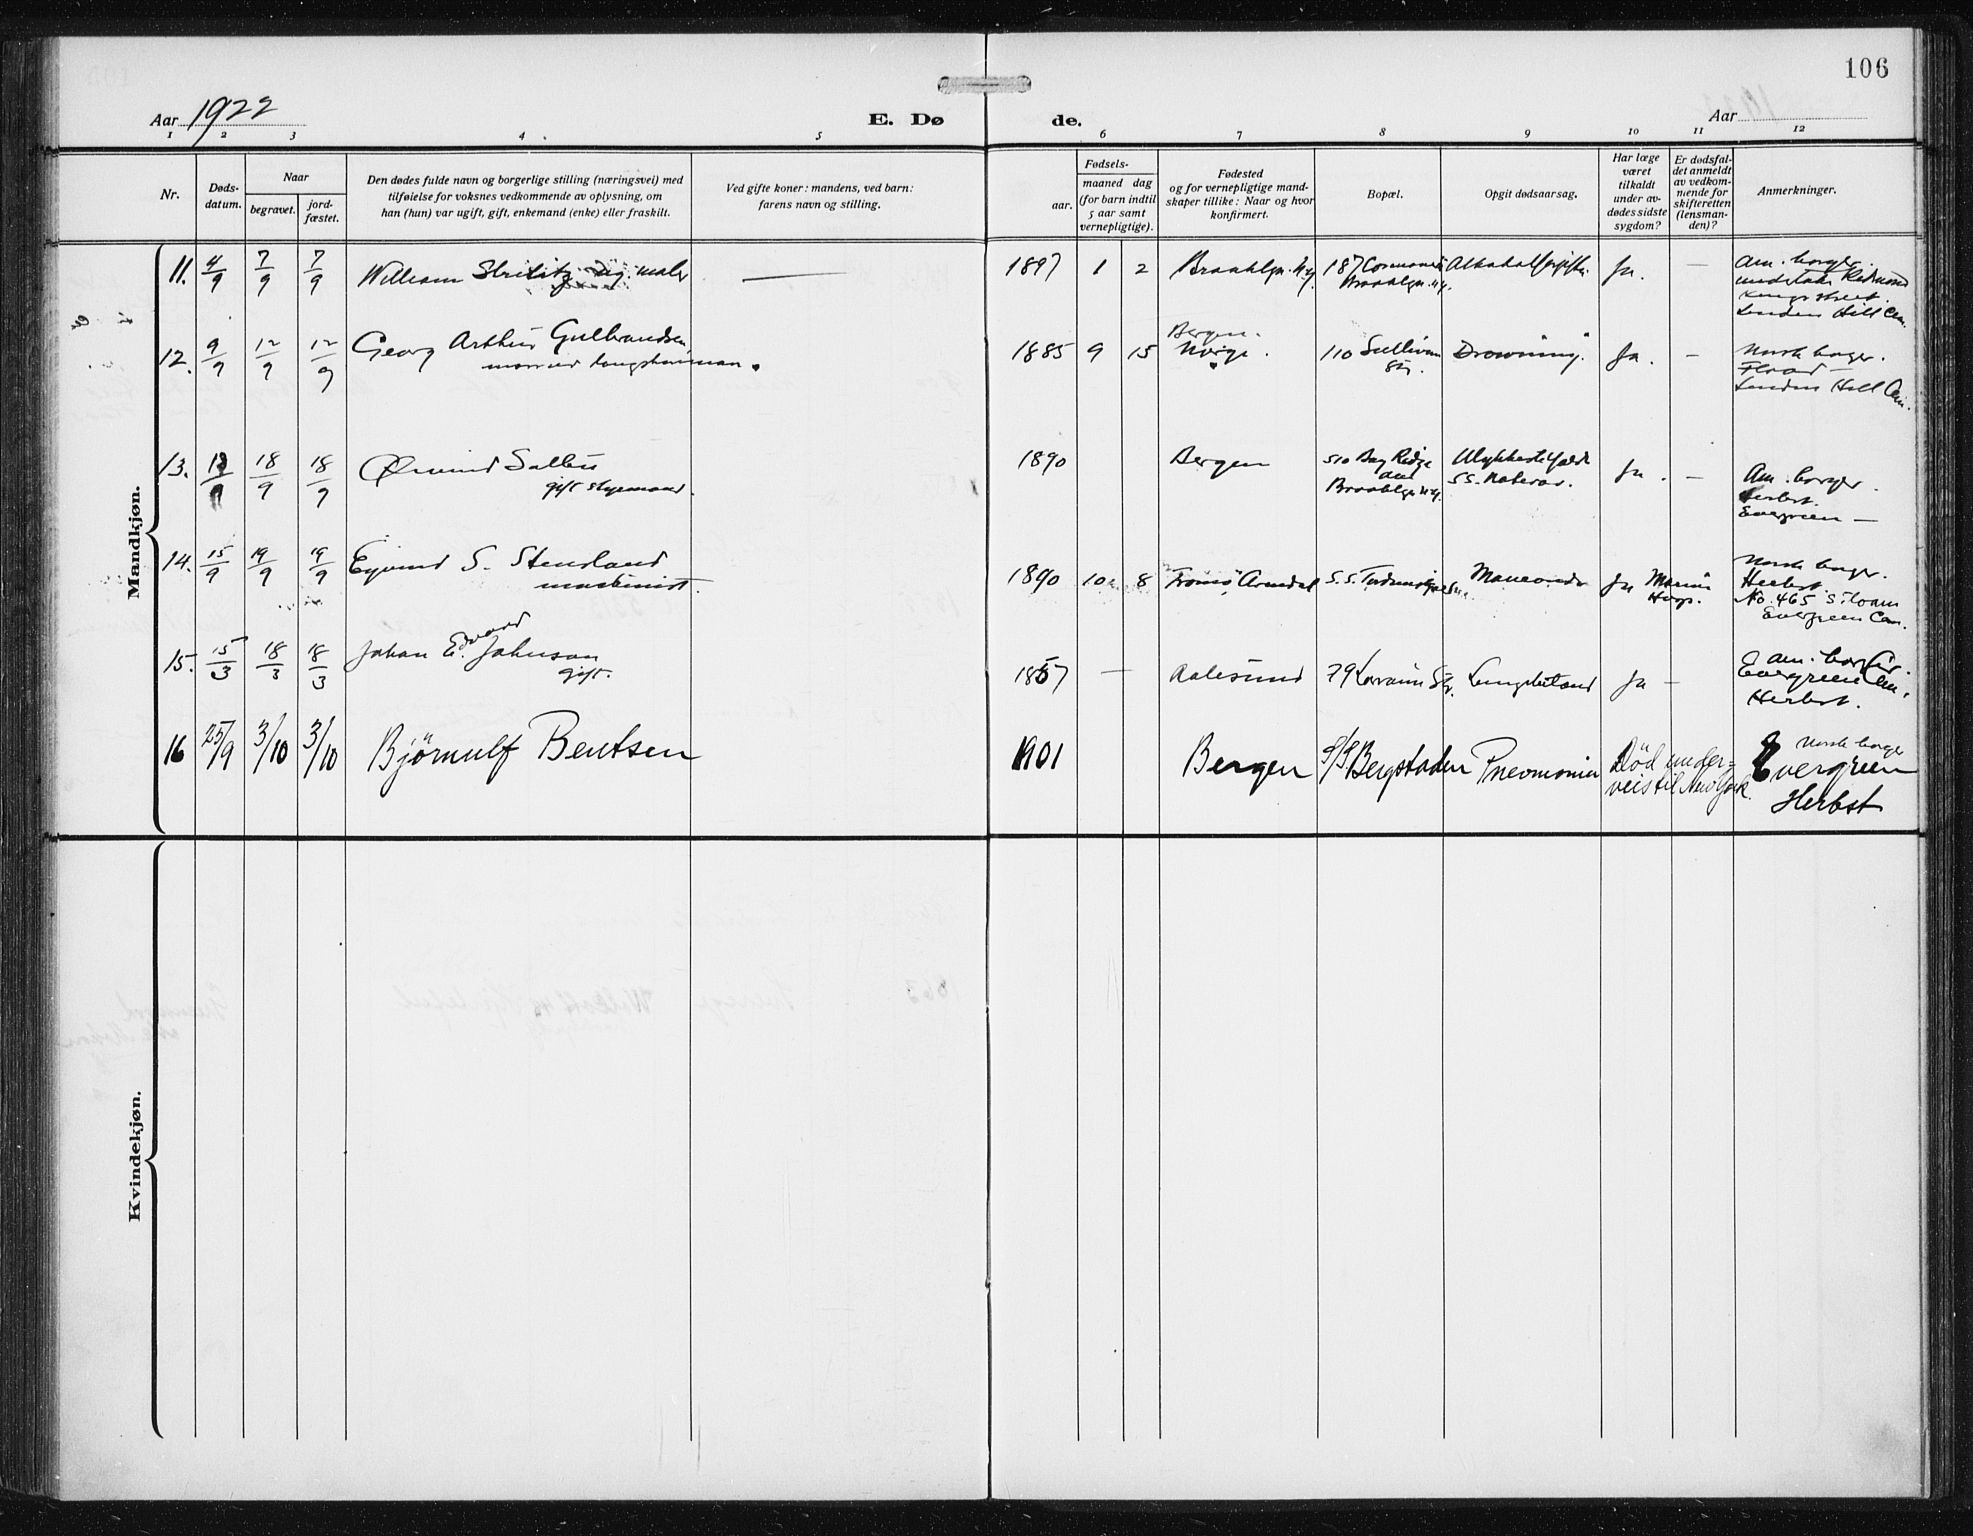 106
Aar 1922
E. Dø
de.
Aar
1 2 3 4 5 6 7 8 9 10 11 12
Nr.
Døds-
datum.
Naar
begravet.
jord-
fæstet.
Den dødes fulde navn og borgerlige stilling (næringsvei) med
tilføielse for voksnes vedkommende av oplysning, om
han (hun) var ugift, gift, enkemand (enke) eller fraskilt.
Ved gifte koner: mandens, ved barn:
farens navn og stilling.
Fødsels-
aar.
maaned dag
(for barn indtil
5 aar samt
vernepligtige).
Fødested
og for vernepligtige mand-
skaper tillike: Naar og hvor
konfirmert.
Bopæl.
Opgit dødsaarsag.
Har læge
været
tilkaldt
under av-
dødes sidste
sygdom?
Er dødsfal-
det anmeldt
av vedkom-
mende for
skifteretten
(lensman-
den)?
Anmerkninger.
Mandkjøn.
11. 4/9 7/9 7/9 William ug. maler — 1897 1 2 Brooklyn. N.Y. 187 Ja. — Am. borger.
Brooklyn. N.Y.
Linden Hill Cem.
12. 9/9 12/9 12/9 Georg Arthur Gulbrandsen 1885 9 15 Bergen.
Norge. 110 Sullivan
Str. Drowning. Ja. — Norsk borger.
Linden Hill Cem.
13. 12/9 18/9 18/9 1890 Bergen 510 Bay Ridge
Ave
Brooklyn N.Y. Ja. — Am. borger.
gift styrmand. S.S. Herbst.
Evergreen —
14. 15/9 19/9 19/9 Eyvind S. Stensland
machinist. 1890 10 8 Tromø, Arendal S.S. Ja Marine
Hosp. Norsk borger.
Herbst.
No. 465 Siloam
Evergreen Cem.
15. 15/3 18/3 18/3 Johan Edvard Johnson
gift. 1857 — Aalesund 79 Lorraine Str. Ja — Am. borger.
Evergreen Cem.
Herbst.
16 25/9 3/10 3/10 Bjørnulf Bentsen 1901 Bergen S/S Bergstaden Pneomonia Død under-
veis til New York. Norsk borger
Evergreen
Herbst
Kvindekjøn.